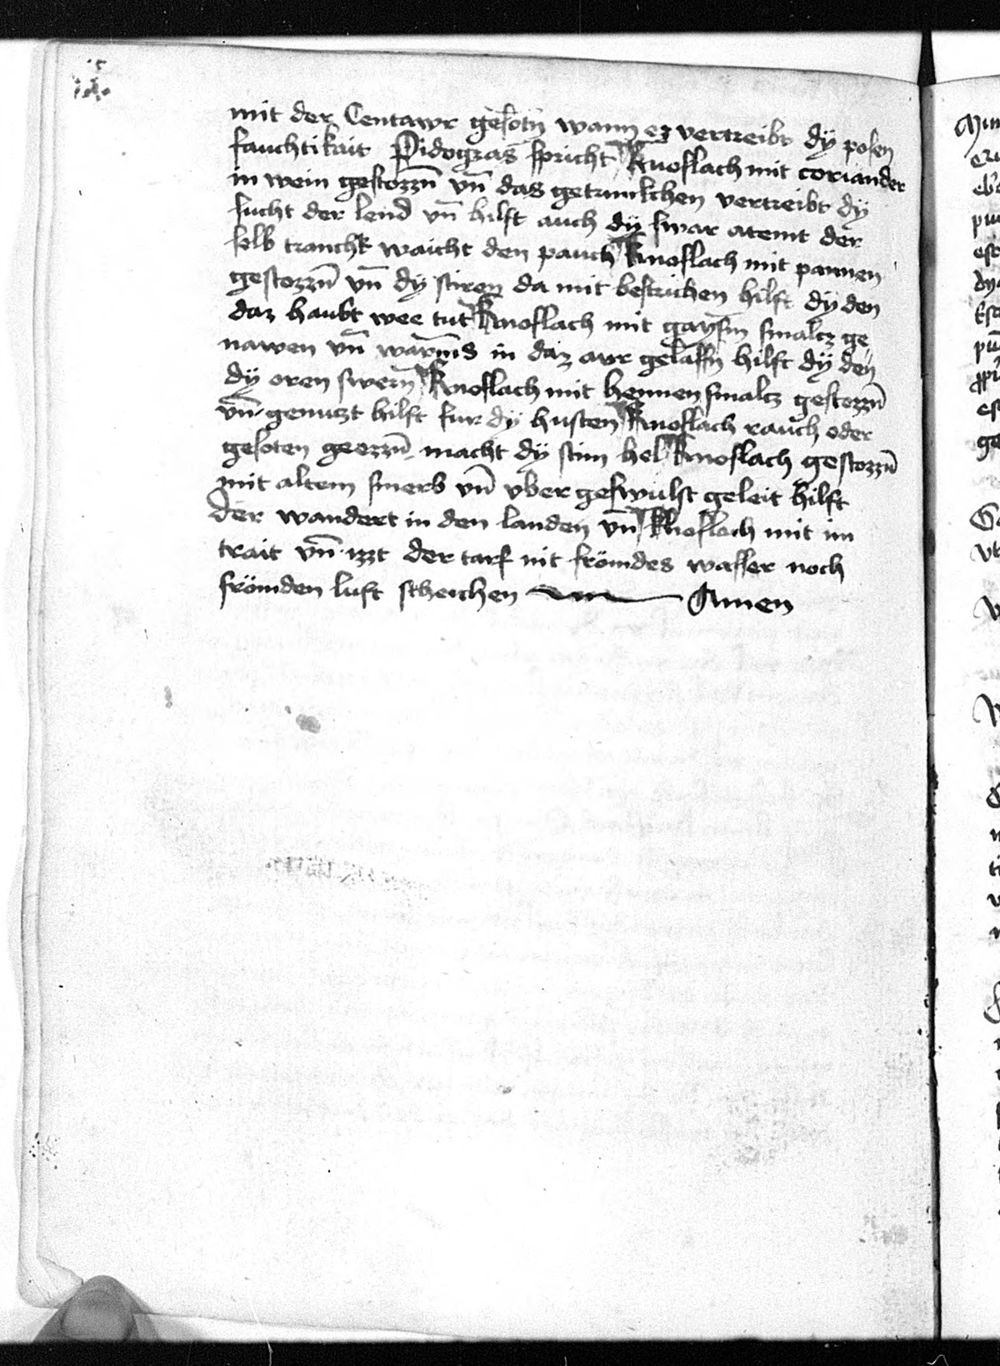 mit der Centawr gesotn wann ez vertreibt dy posen
fauchtikait Pidogras spricht knoflach mit coriander
in wein gestozzn̄ vn̄ das getrunkchen vertreibt dy
sucht der lend vn̄ hilft auch dy swar atemt der
selb tranchk waicht den pauch knoflach mit pannen
gestozzn̄ vn̄ dy stiren da mit bestrichen hilft dy den
daz haubt wee tut knoflach mit gaysm smalcz ge
nawen vn̄ warms in daz aur gelassn hilft dy den
dy oren swern knoflach mit hennen smalcz gestozzn̄
vn̄ genuczt hilft fur dy husten knoflach rauch oder
gesoten geezzn̄ macht dy stim hel knoflach gestozzn̄
mit altem smerb vn̄ vber geswulst geleit hilft
der wandert in den landen vn̄ knoflach mit im
trait vn̄ izzt der tarf nit frömdes wasser noch
frömden luft scheichen Amen